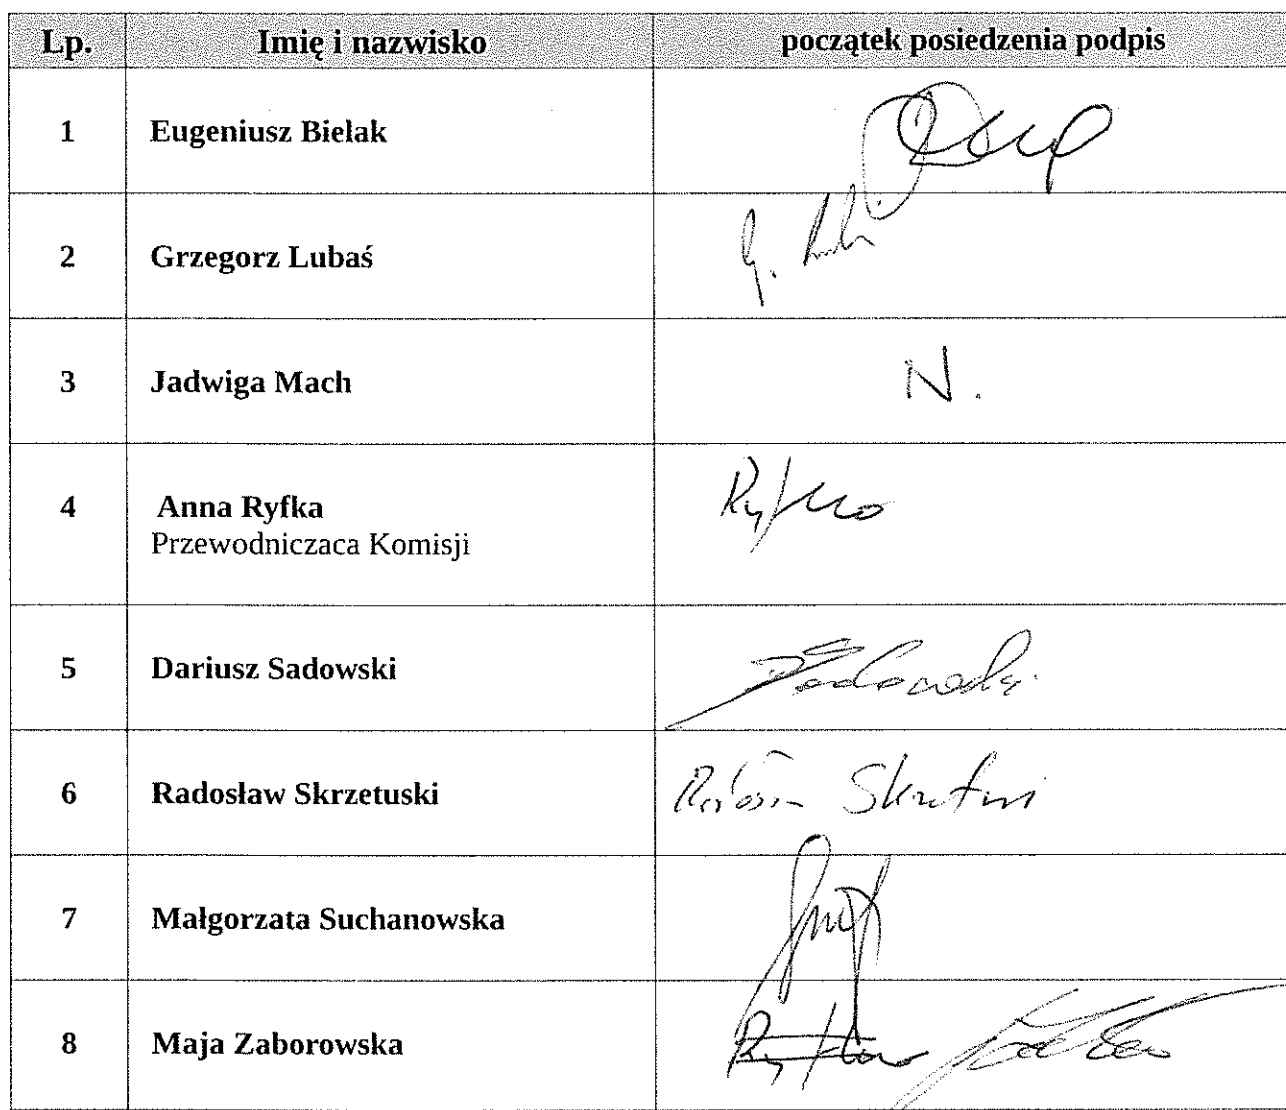 Lp. Imię i nazwisko początek posiedzenia podpis
1 Eugeniusz Bielak
2 Grzegorz Lubaś G.
3 Jadwiga Mach N.
4 Anna Ryfka Ryfka
Przewodniczaca Komisji
5 Dariusz Sadowski Sadowski
6 Radosław Skrzetuski
7 Małgorzata Suchanowska
8 Maja Zaborowska